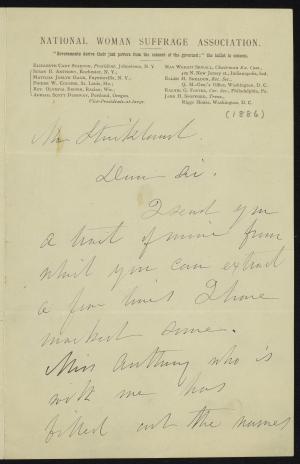 NATIONAL WOMAN SUFFRAGE ASSOCIATION.
"Governments derive their just powers from the consent of the governed;" the ballot is consent.
ELIZABETH CADY STANTON, President, Johnstown, N. Y.
SUSAN B. ANTHONY, Rochester, N. Y.,
MATILDA JOSLYN GAGE, Fayetteville, N. Y.,
PHOEBE W. COUZINS, St. Louis, Mo.,
REV. OLYMPIA BROWN, Racine, Wis.,
ABIGAIL SCOTT DUNIWAY, Portland, Oregon,
Vice-Presidents-at-large.
MAY WRIGHT SEWALL, Chairman Ex. Com.,
405 N. New Jersey st., Indianapolis, Ind.
ELLEN H. SHELDON, Rec. Sec.,
Q. M.-Gen.'s Office, Washington, D. C.
RACHEL G. FOSTER, Cor. Sec., Philadelphia, Pa.
JANE H. SPOFFORD, Treas.,
Riggs House, Washington, D. C.
(1886)
Mr
Dear Sir.
I send you
a tract of mine from
which you can extract
a few lines I have
marked some.
Miss Anthony who is
with me has
filled out the names